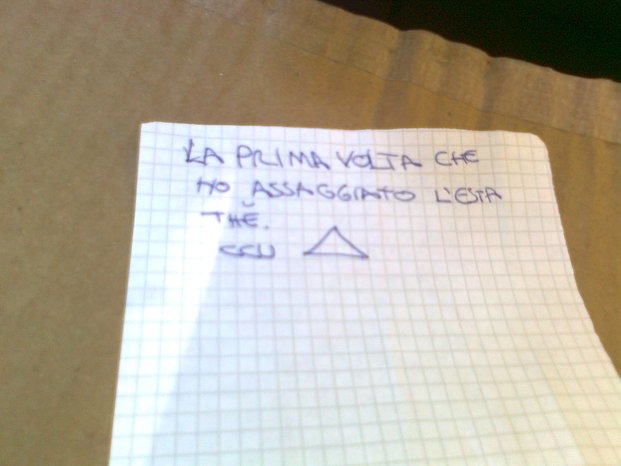 LA PRIMA VOLTA CHE
HO ASSAGGIATO L'ESTA
THĔ.
CCU